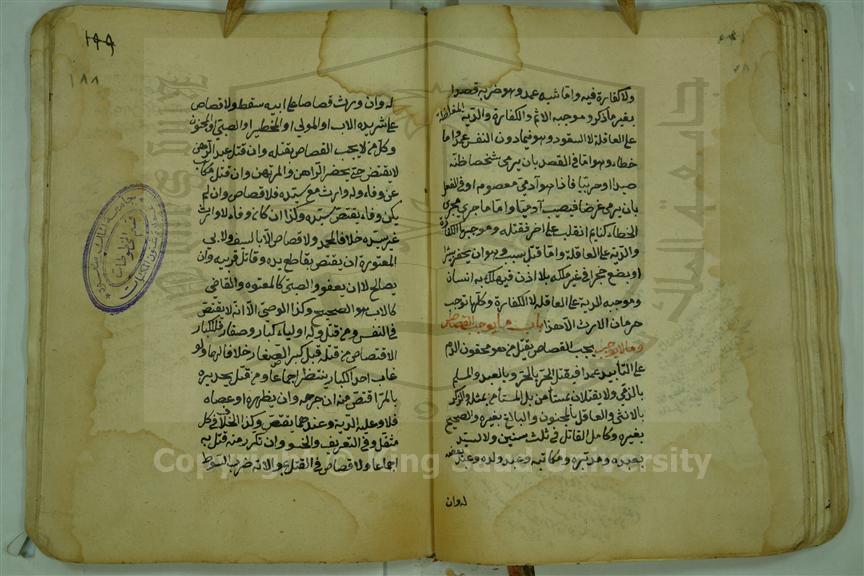 ولا كفارة فيه واما شبه عمد وهو ضربه قصدا
بغير ما ذكر وموجبه الاثم والكفارة والدية المغلظة
على العاقلة لا القود وهو فيما دون النفس عمد واما
خطاء وهو اما في القصد بان يرمي شخصا ظنه
صيدا او حربيا فاذا هو آدمي معصوم او في الفعل
بان يرمي غرضا فيصيب آدميا واما ما جرى مجرى
الخطاء كنايم انقلب على اخر فقتله وموجبهما الكفارة
والدية على العاقلة واما قتل بسبب وهو ان يحفر بئرا
او يضع حجرا في غير ملكه بلا اذن فيهلك به انسان
وموجبه الدية على العاقلة لا الكفارة وكلها توجب
حرمان الارث الا هذا باب ما يوجب القصاص
وما لا يوجب يجب القصاص بقتل من هو محقون الدم
على التأبيد عمدا فيقتل الحر بالحر وبالعبد والمسلم
بالذمي ولا يقتلان بمستأمن بل المستأمن بمثله والذكر
بالانثى والعاقل بالمجنون والبالغ بغيره والصحيح
بغيره وكامل القاتل في ثلث سنين ولا سيد
بعبده ومدبره ومكاتبه وعبد ولده وعبد بعضه
له وان
١٨٨
له وان ورث قصاصا على ابيه سقط ولا قصاص
على شريك الاب او المولى او المخطئ او الصبي او المجنون
وكل من لا يجب القصاص بقتله وان قتل عبد الرهن
لا يقتص حتى يحضر الراهن والمرتهن وان قتل مكاتب
عن وفاء وله وارث مع سيده فلا قصاص وان لم
يكن وفاء يقتص سيده وكذا ان كان وفاء ولا وارث
غير سيده خلافا لمحمد ولا قصاص الا بالسيف ولابي
المعتوه ان يقتص بقاطع يده وقاتل قريبه وان
يصالح لا ان يعفو والصبي كالمعتوه والقاضي
كالاب هو الصحيح وكذا الوصي الا انه لا يقتص
في النفس ومن قتل وله اولياء كبار وصغار فللكبار
الاقتصاص من قتله قبل كبر الصغار خلافا لهما ولو
غاب احد الكبار ينتظر اجماعا ومن قتل بحديدة
بالمر اقتص منه ان جرحه وان بظهره او عصاه
فلا وعليه الدية وعندهما يقتص وكذا الخلاف في كل
مثقل وفي التغريق والخنق وان تكرر منه قتل به
اجماعا ولا قصاص في القتل بموالاة ضرب السوط
جامعة الملك سعود
Copyright © King Saud University